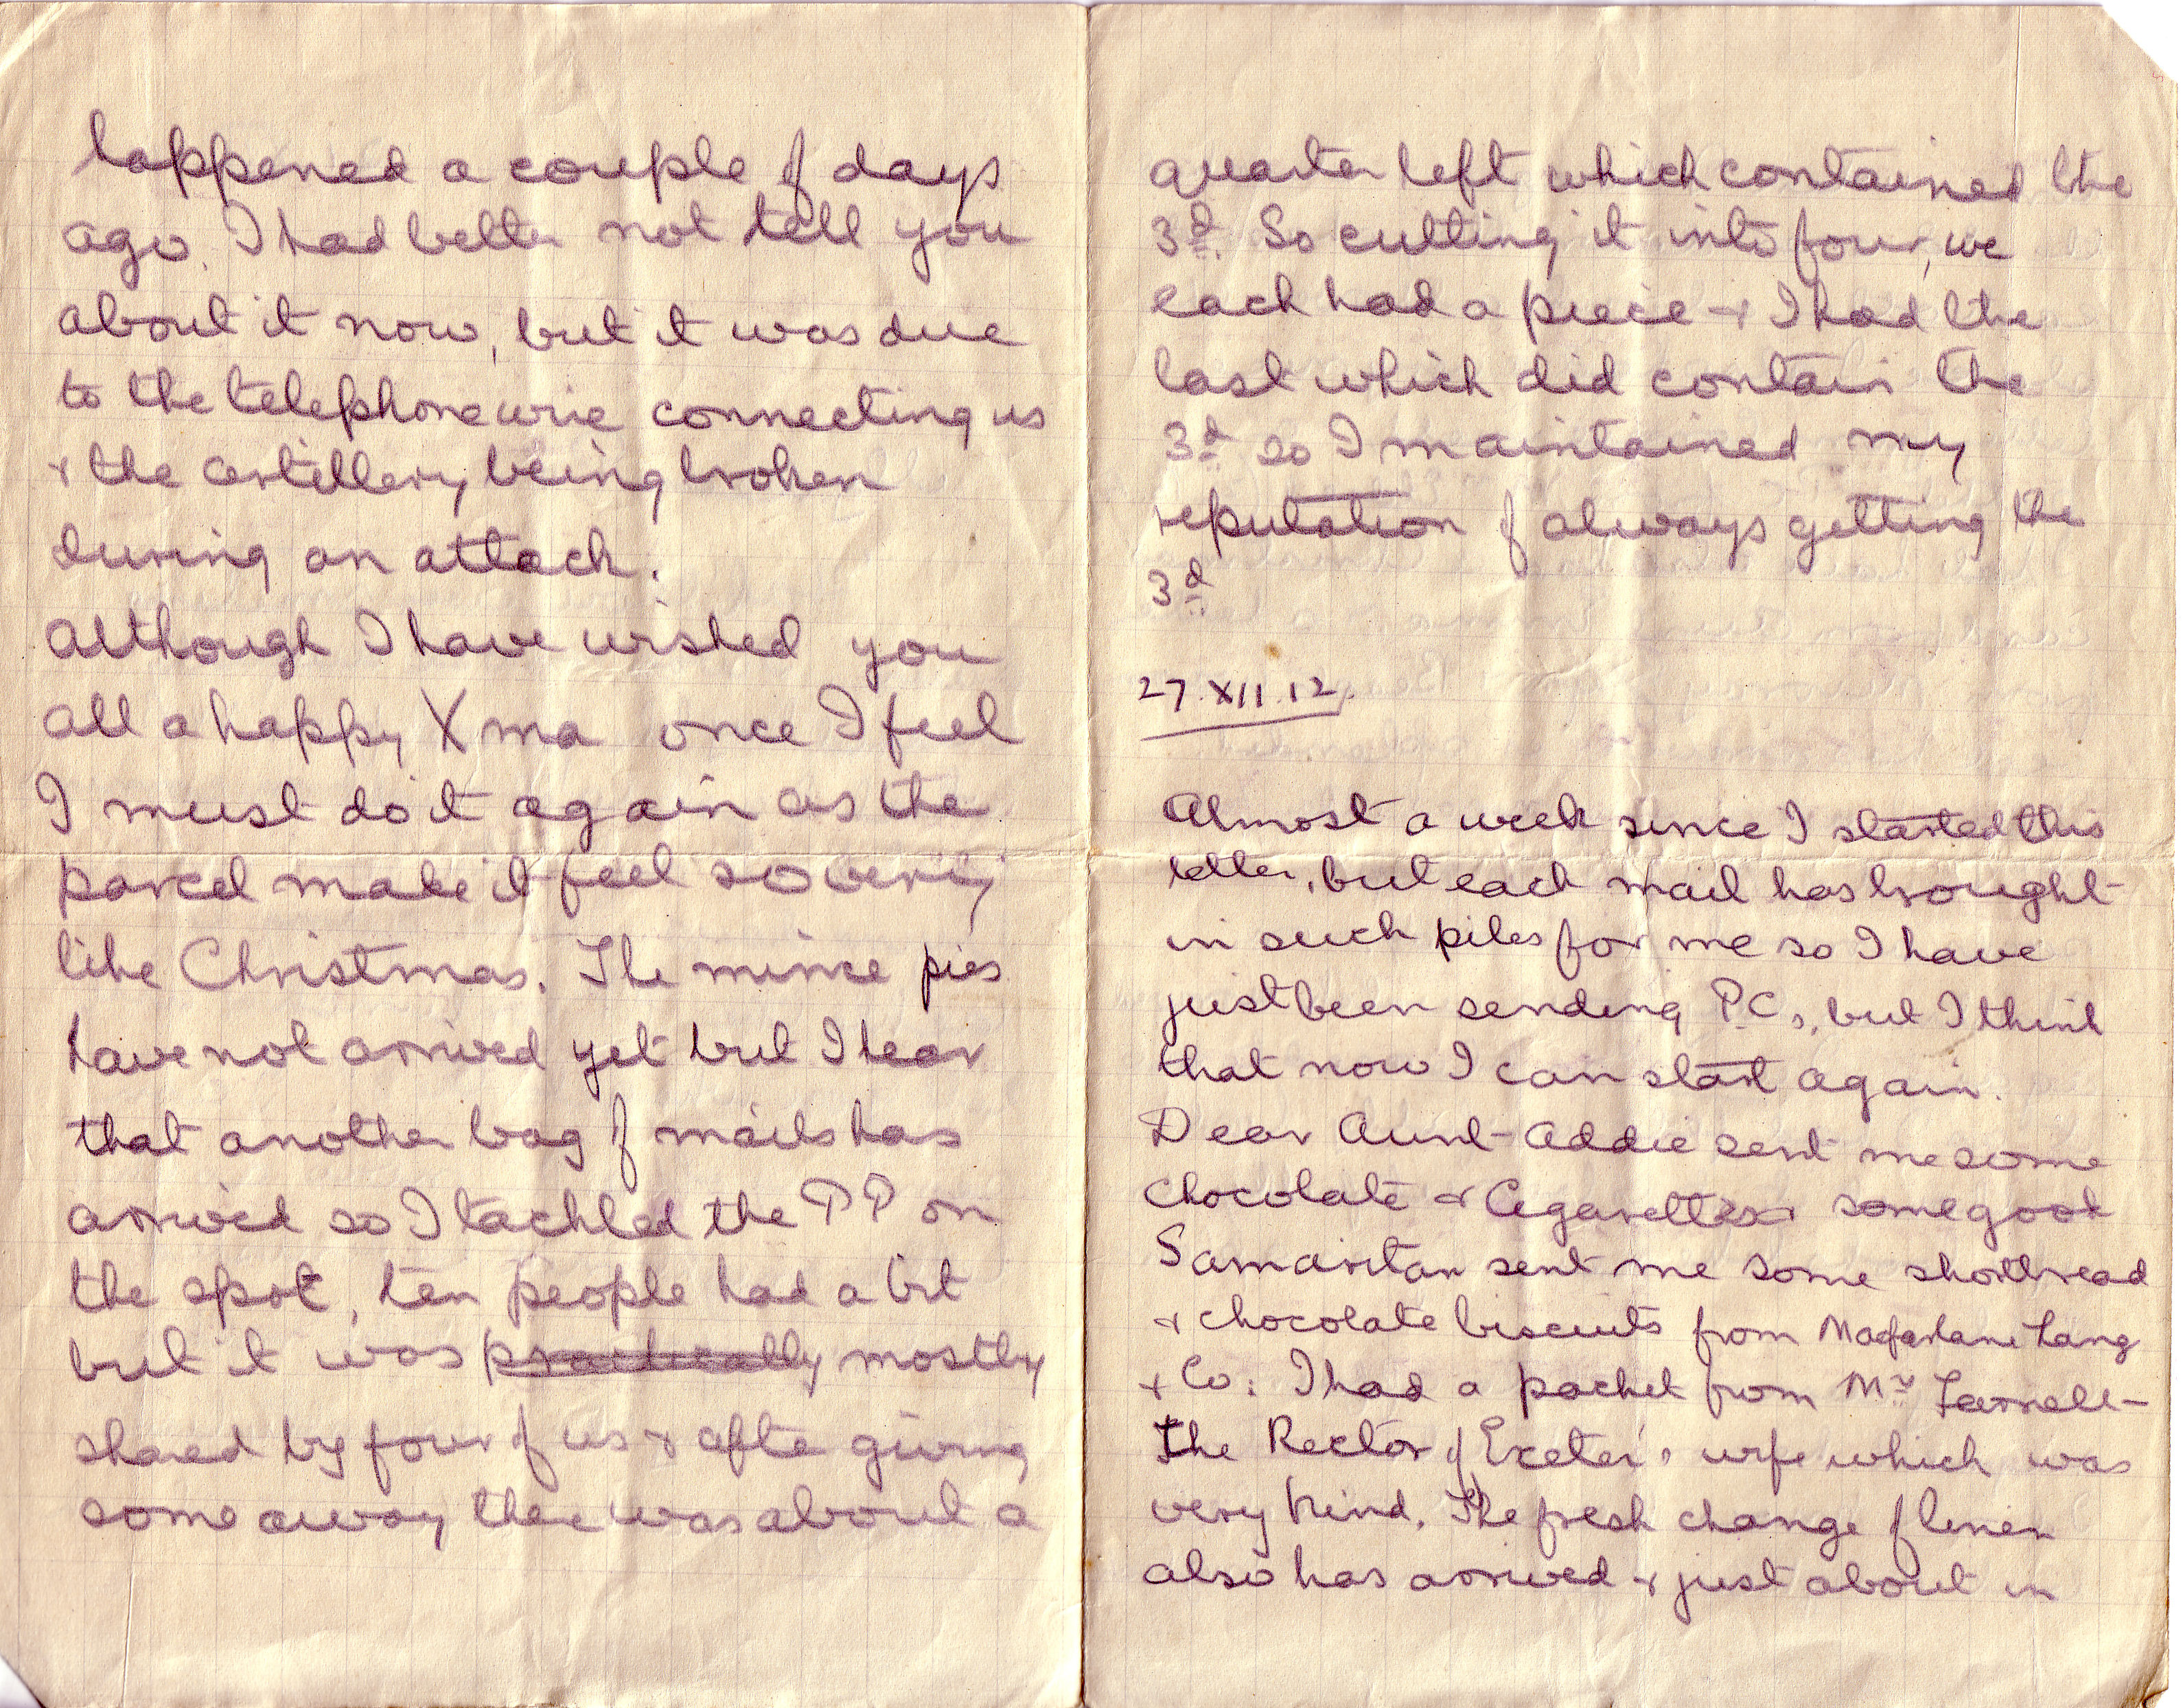 happened a couple of days
ago. I had better not tell you
about it now, but it was due
to the telephone wire connecting us
& the artillery being broken
during an attack.
Although I have wished you
all a happy Xma once I feel
I must do it again as the
parcel make it feel so very
like Christmas. The mince pies
have not arrived yet but I hear
that another bag of mails has
arrived so I tackled the PP on
the spot, ten people had a bit
but it was practically mostly
shared by four of us & after giving
some away there was about a
quarter left which contained the
3d. So cutting it into four, we
each had a piece & I had the
last which did contain the
3d so I maintained my
reputation of always getting the
3d
27.XII.12.
Almost a week since I started this
letter, but each mail has brought
in such piles for me so I have
just been sending P.C.s, but I think
that now I can start again.
Dear Aunt Addie sent me some
chocolate & Cigarettes & some good
Samaritan sent me some shortbread
& chocolate biscuits from Macfarlane Lang
& Co: I had a packet from Mrs Farnell-
the Rector of Exeter's wife which was
very kind. The fresh change of linen
also has arrived & just about in